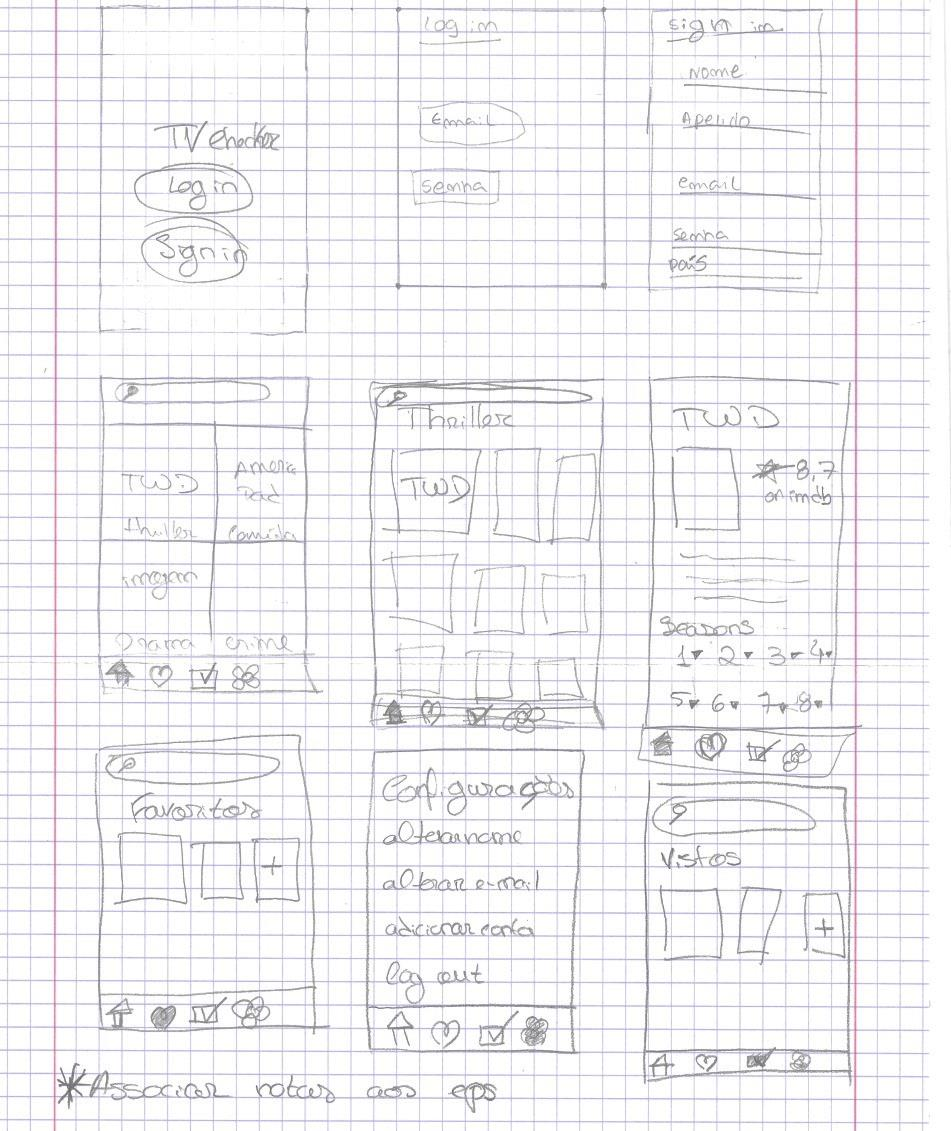 TV Checker
Log in
Sign in
Log in
Email
senha
sign in
Nome
Apelido
email
senha
país
TWD
America
Dad
thriller
comédia
imagem
Drama crime
Thriller
TWD
TWD
8,7
on imdb
Seasons
1 2 3 4
5 6 7 8
Favoritos
+
Configurações
alterar nome
alterar e-mail
adicionar conta
log out
Vistos
+
*Associar notas aos eps